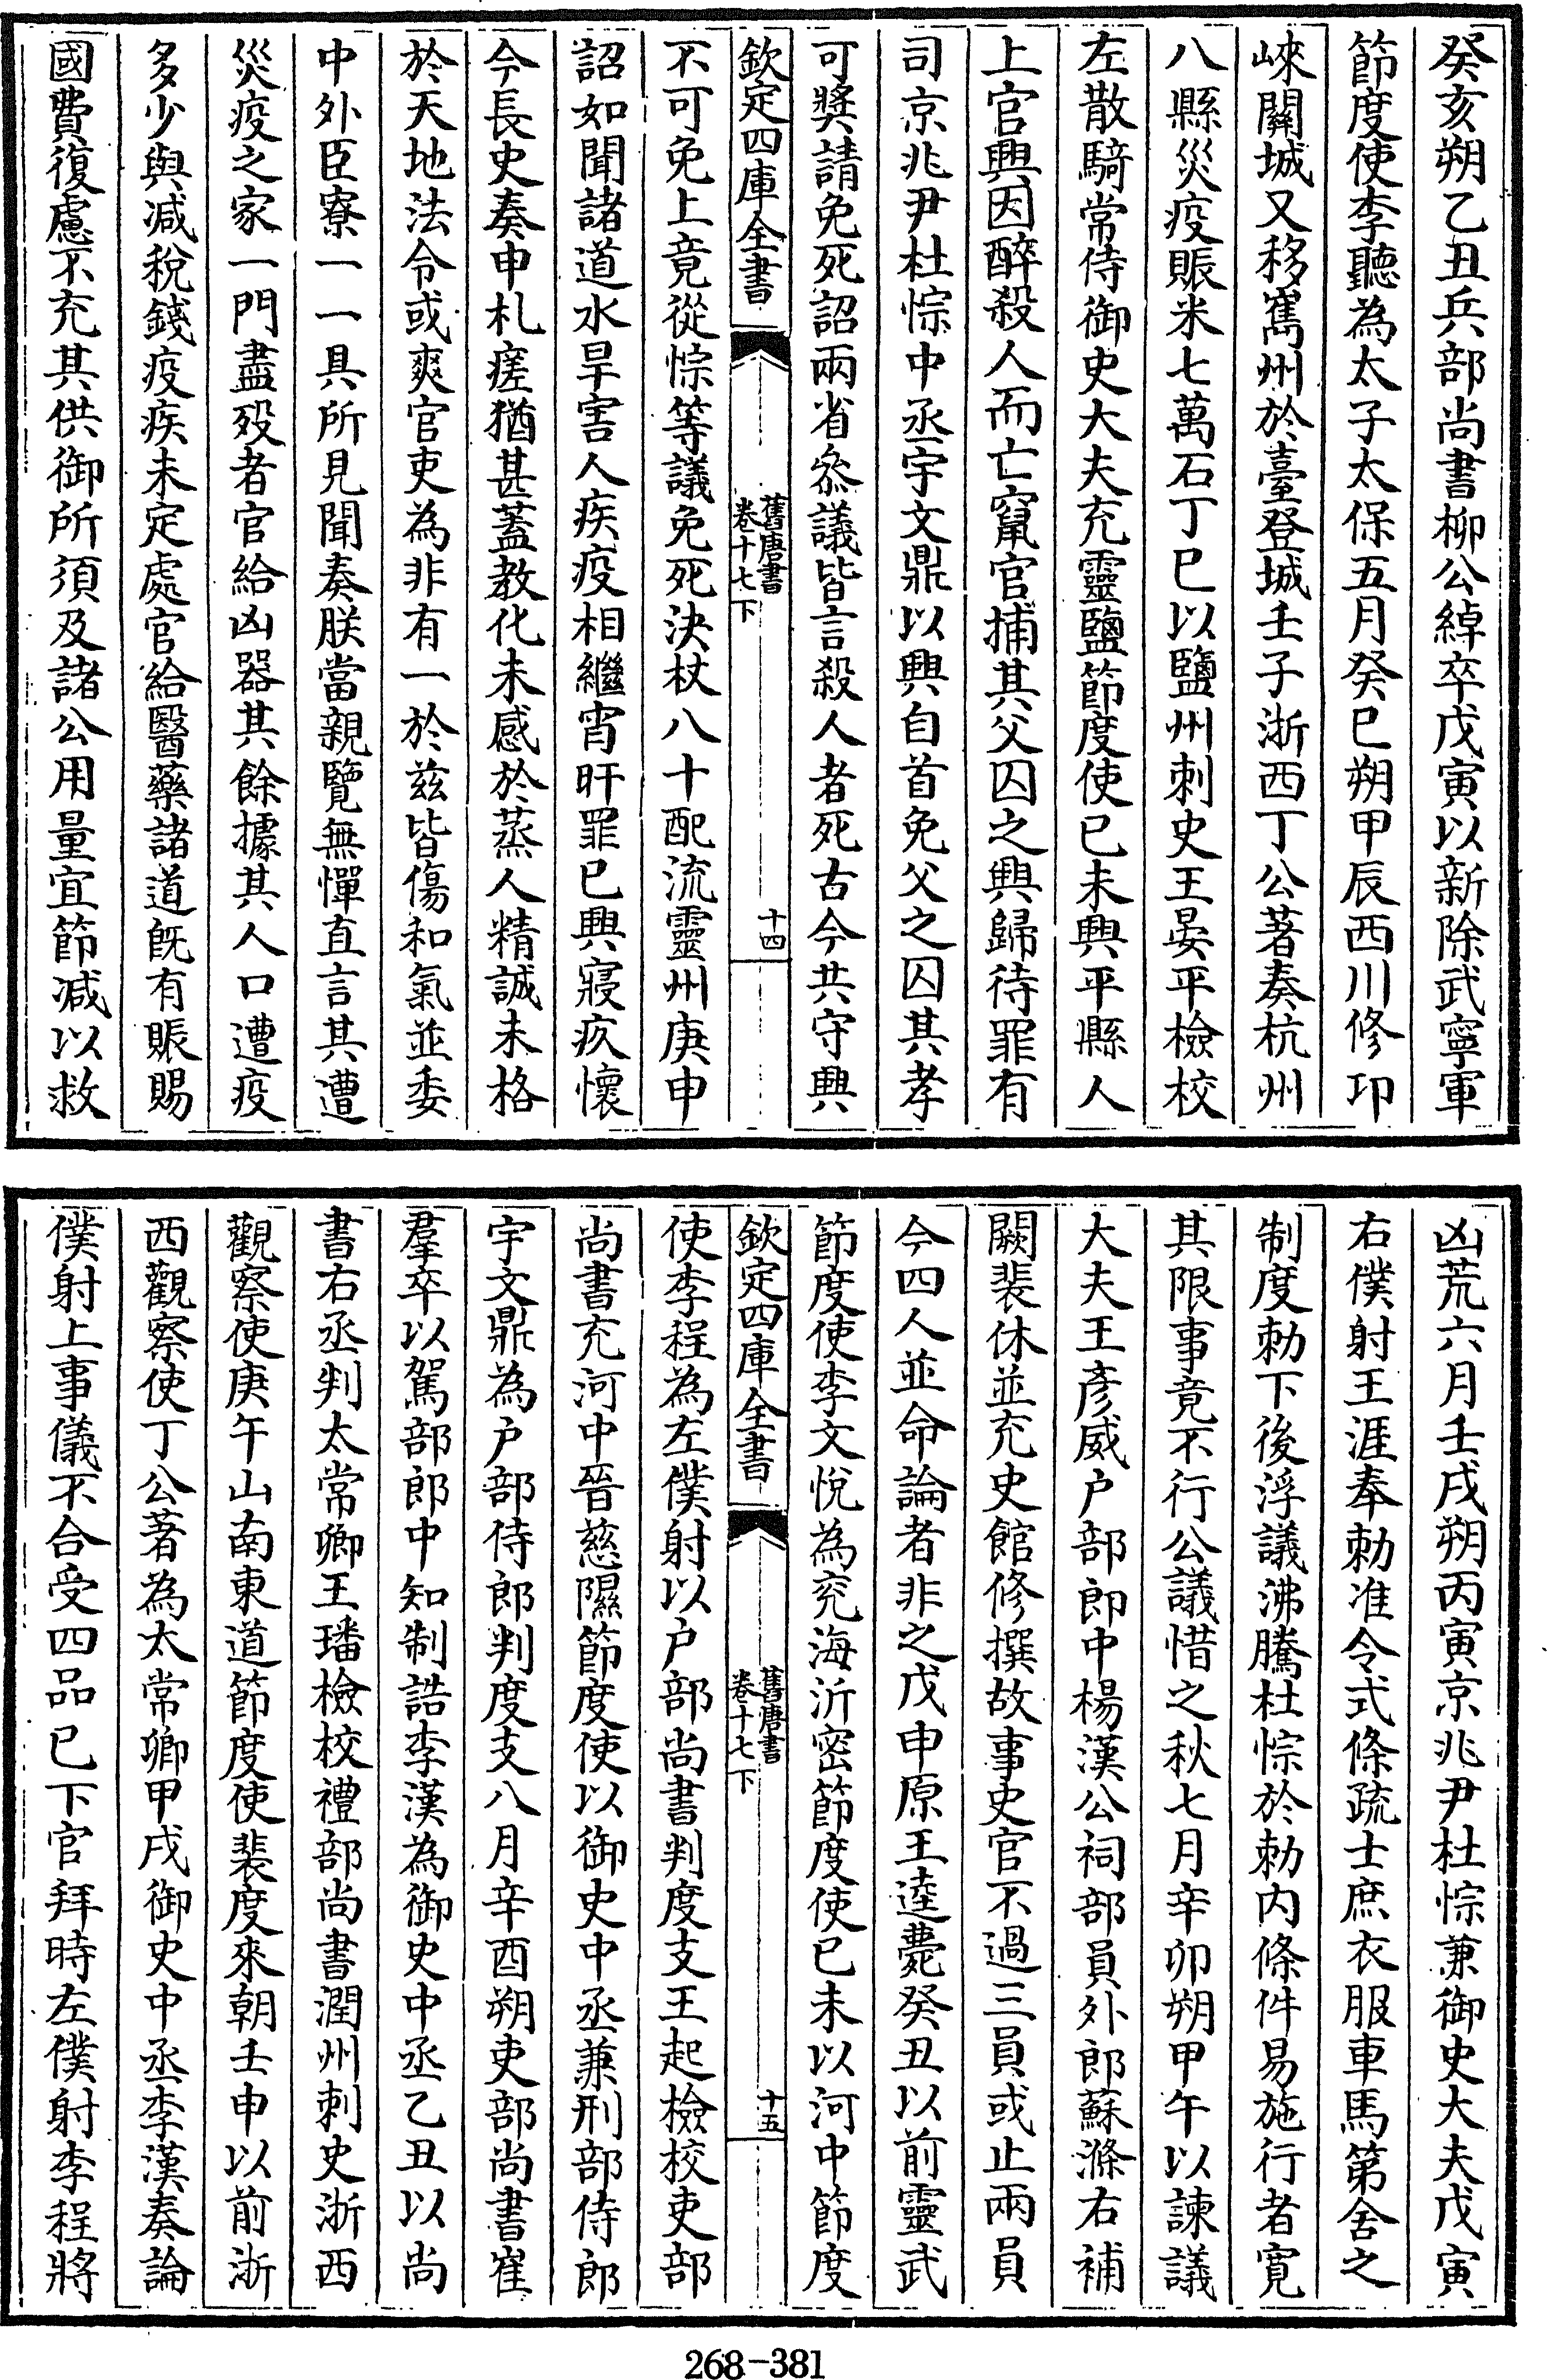 癸亥朔乙丑兵部尚書柳公綽卒戊寅以新除武寧軍
節度使李聽為太子太保五月癸巳朔甲辰西川修卭
崍關城又移嶲州於臺登城壬子浙西丁公著奏杭州
八縣災疫賑米七萬石丁巳以鹽州刺史王晏平檢校
左散騎常侍御史大夫充靈鹽節度使己未興平縣人
上官興因醉殺人而亡竄官捕其父囚之興歸待罪有
司京兆尹杜悰中丞宇文鼎以興自首免父之囚其孝
可奬請免死詔兩省叅議皆言殺人者死古今共守興
欽定四庫全書
舊唐書
卷十七下
十四
不可免上竟從悰等議免死決杖八十配流靈州庚申
詔如聞諸道水旱害人疾疫相繼宵旰罪己興寢疚懷
今長史奏申札瘥猶甚蓋教化未感於蒸人精誠未格
於天地法令或爽官吏為非有一於兹皆傷和氣並委
中外臣寮一一具所見聞奏朕當親覽無憚直言其遭
災疫之家一門盡歿者官給凶器其餘據其人口遭疫
多少與减稅錢疫疾未定處官給醫藥諸道既有賑賜
國費復慮不充其供御所須及諸公用量宜節减以救
凶荒六月壬戌朔丙寅京兆尹杜悰兼御史大夫戊寅
右僕射王涯奉勅准令式條疏士庶衣服車馬第舍之
制度勅下後浮議沸騰杜悰於勅内條件易施行者寛
其限事竟不行公議惜之秋七月辛卯朔甲午以諫議
大夫王彥威户部郎中楊漢公祠部員外郎蘇滌右補
闕裴休並充史館修撰故事史官不過三員或止兩員
今四人並命論者非之戊申原王逵薨癸丑以前靈武
節度使李文悅為兖海沂密節度使已未以河中節度
欽定四庫全書
舊唐書
卷十七下
十五
使李程為左僕射以户部尚書判度支王起檢校吏部
尚書充河中晉慈隰節度使以御史中丞兼刑部侍郎
宇文鼎為户部侍郎判度支八月辛酉朔吏部尚書崔
羣卒以駕部郎中知制誥李漢為御史中丞乙丑以尚
書右丞判太常卿王璠檢校禮部尚書潤州刺史浙西
觀察使庚午山南東道節度使裴度來朝壬申以前浙
西觀察使丁公著為太常卿甲戌御史中丞李漢奏論
僕射上事儀不合受四品已下官拜時左僕射李程將
268-381